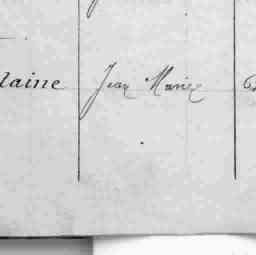 laine Jean Marie